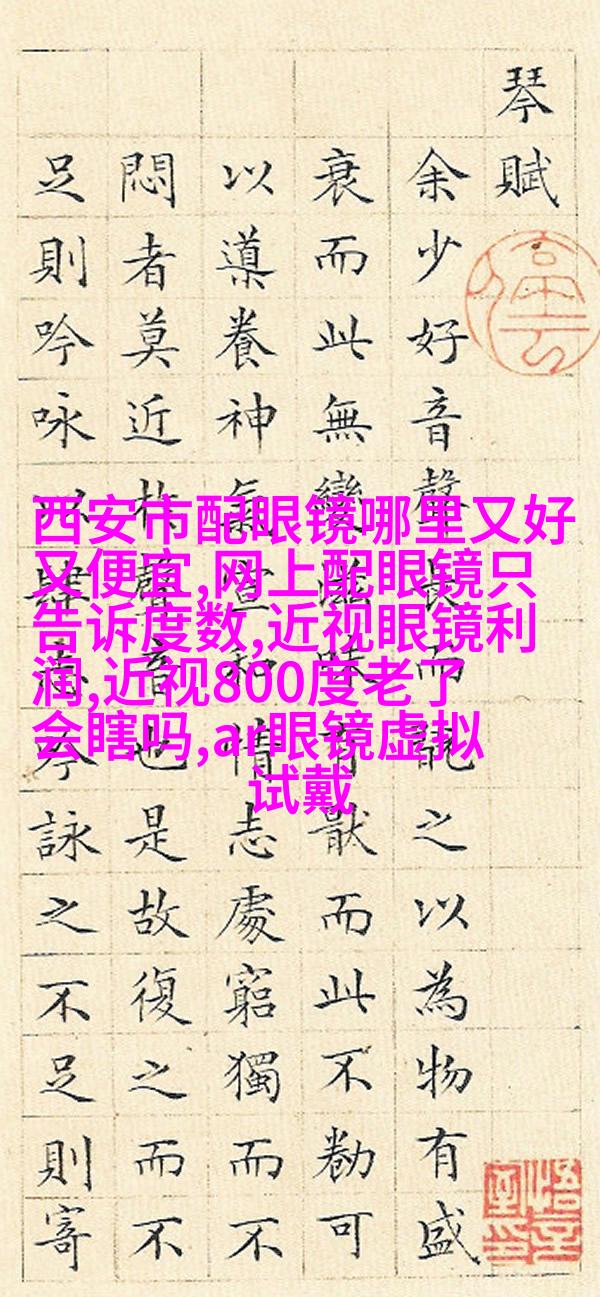 琴賦
余少好音聲長而翫之以為物有盛
衰而此無變滋味有猒而此不勌可
以導養神氣宣和情志處窮獨而不
悶者莫近於聲音也是故復之而不
足則吟咏以肆志吟詠之不足則寄
西安市配眼镜哪里又好
又便宜,网上配眼镜只
告诉度数,近视眼镜利
润,近视800度老了
会瞎吗,ar眼镜虚拟
试戴